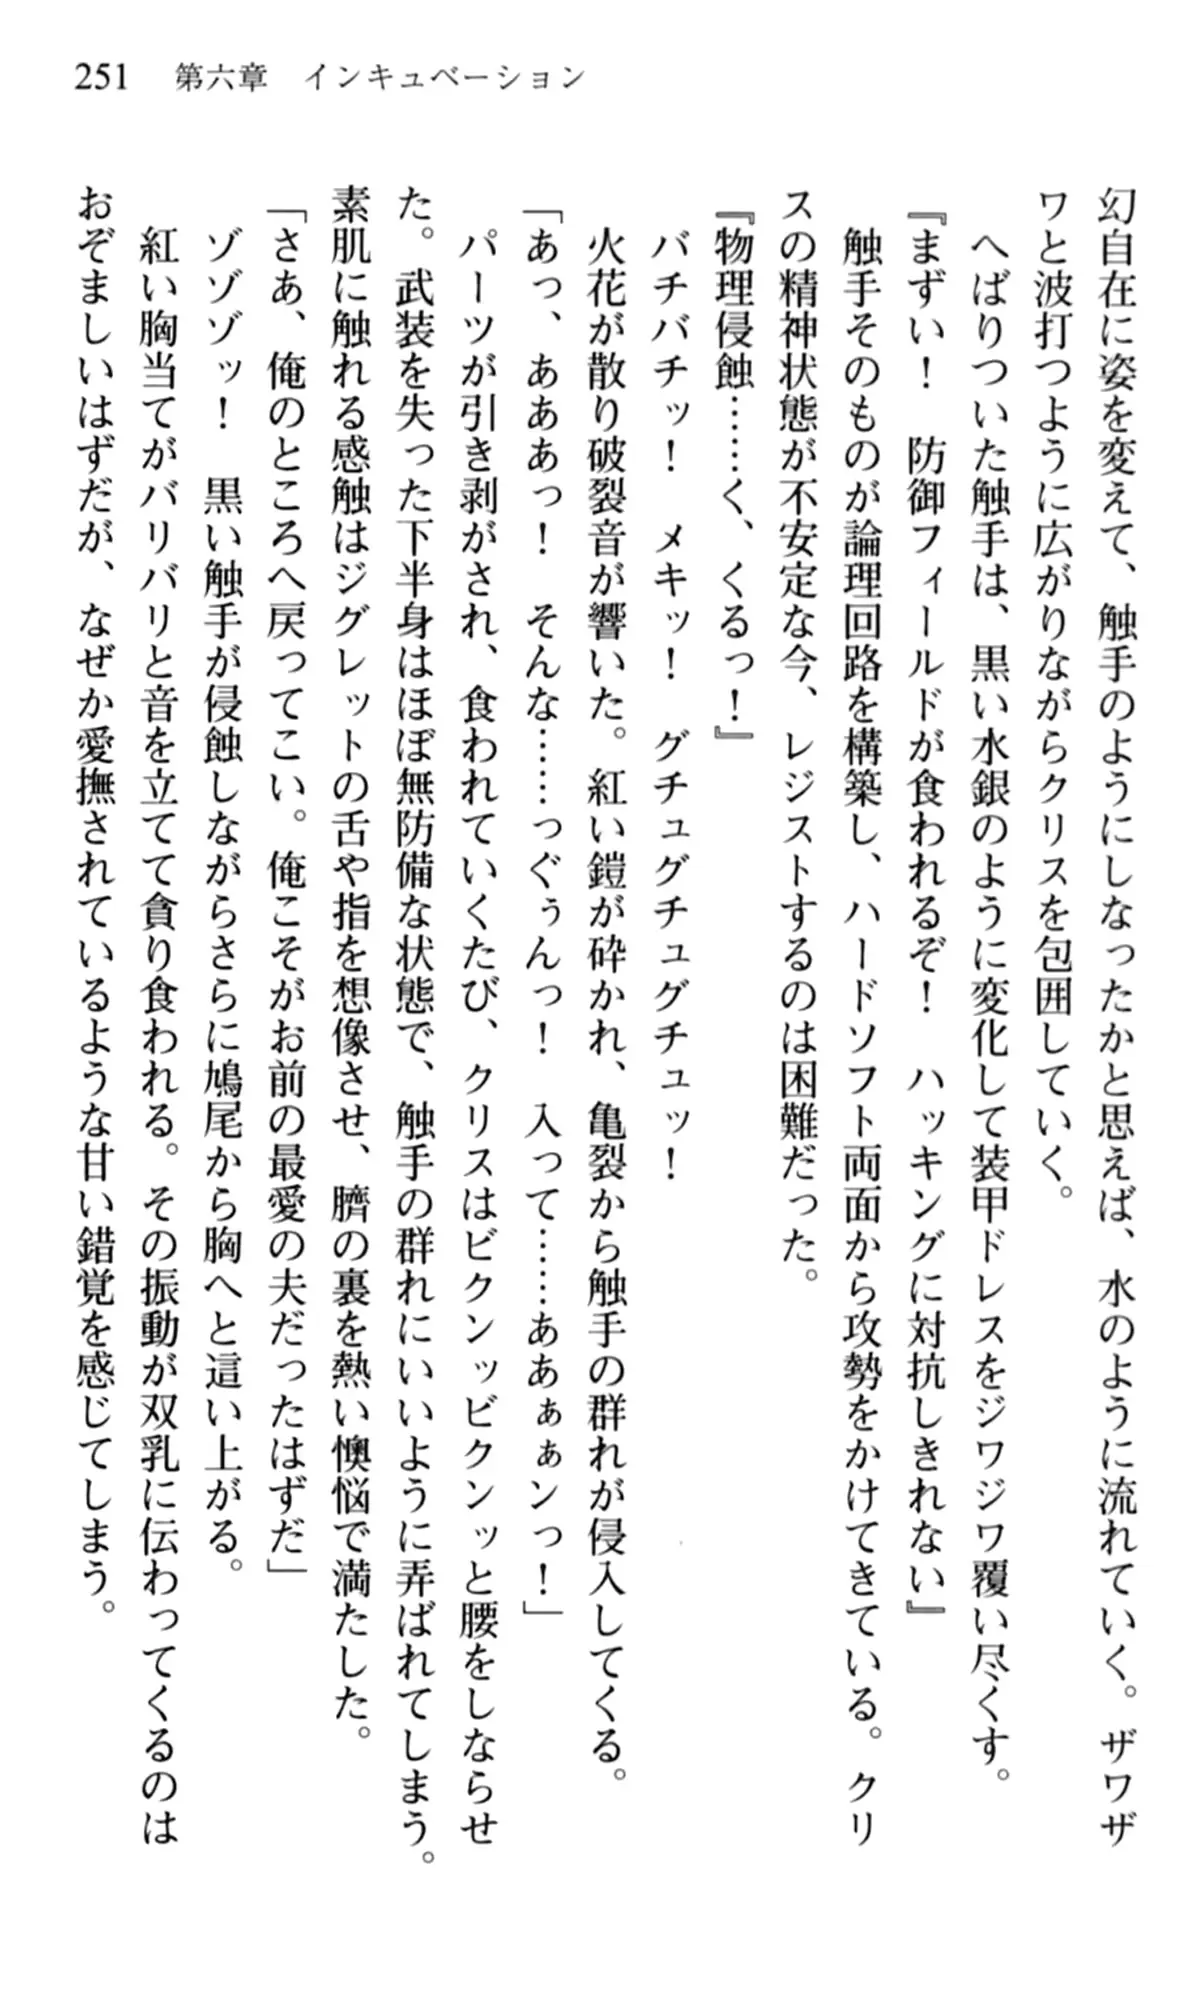 251　第六章　インキュベーション
幻自在に姿を変えて、触手のようにしなったかと思えば、水のように流れていく。ザワザ
ワと波打つように広がりながらクリスを包囲していく。
　へばりついた触手は、黒い水銀のように変化して装甲ドレスをジワジワ覆い尽くす。
『まずい！　防御フィールドが食われるぞ！　ハッキングに対抗しきれない』
　触手そのものが論理回路を構築し、ハードソフト両面から攻勢をかけてきている。クリ
スの精神状態が不安定な今、レジストするのは困難だった。
『物理侵蝕……く、くるっ！』
　バチバチッ！　メキッ！　グチュグチュグチュッ！
　火花が散り破裂音が響いた。紅い鎧が砕かれ、亀裂から触手の群れが侵入してくる。
「あっ、あああっ！　そんな……っぐぅんっ！　入って……ああぁぁンっ！」
　パーツが引き剥がされ、食われていくたび、クリスはビクンッビクンッと腰をしならせ
た。武装を失った下半身はほぼ無防備な状態で、触手の群れにいいように弄ばれてしまう。
素肌に触れる感触はジグレットの舌や指を想像させ、臍の裏を熱い懊悩で満たした。
「さあ、俺のところへ戻ってこい。俺こそがお前の最愛の夫だったはずだ」
　ゾゾゾッ！　黒い触手が侵蝕しながらさらに鳩尾から胸へと這い上がる。
　紅い胸当てがバリバリと音を立てて貪り食われる。その振動が双乳に伝わってくるのは
おぞましいはずだが、なぜか愛撫されているような甘い錯覚を感じてしまう。